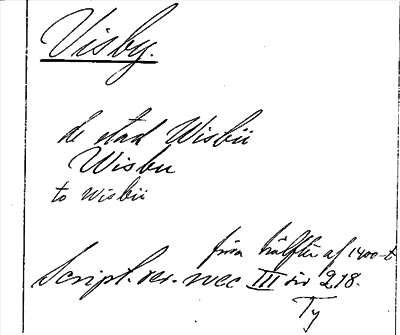 Visby.
de stad Wisbii
Wisbu
to Wisbii
förra hälften af 1400-t
Script. rer. svec III sid 218.
Ty